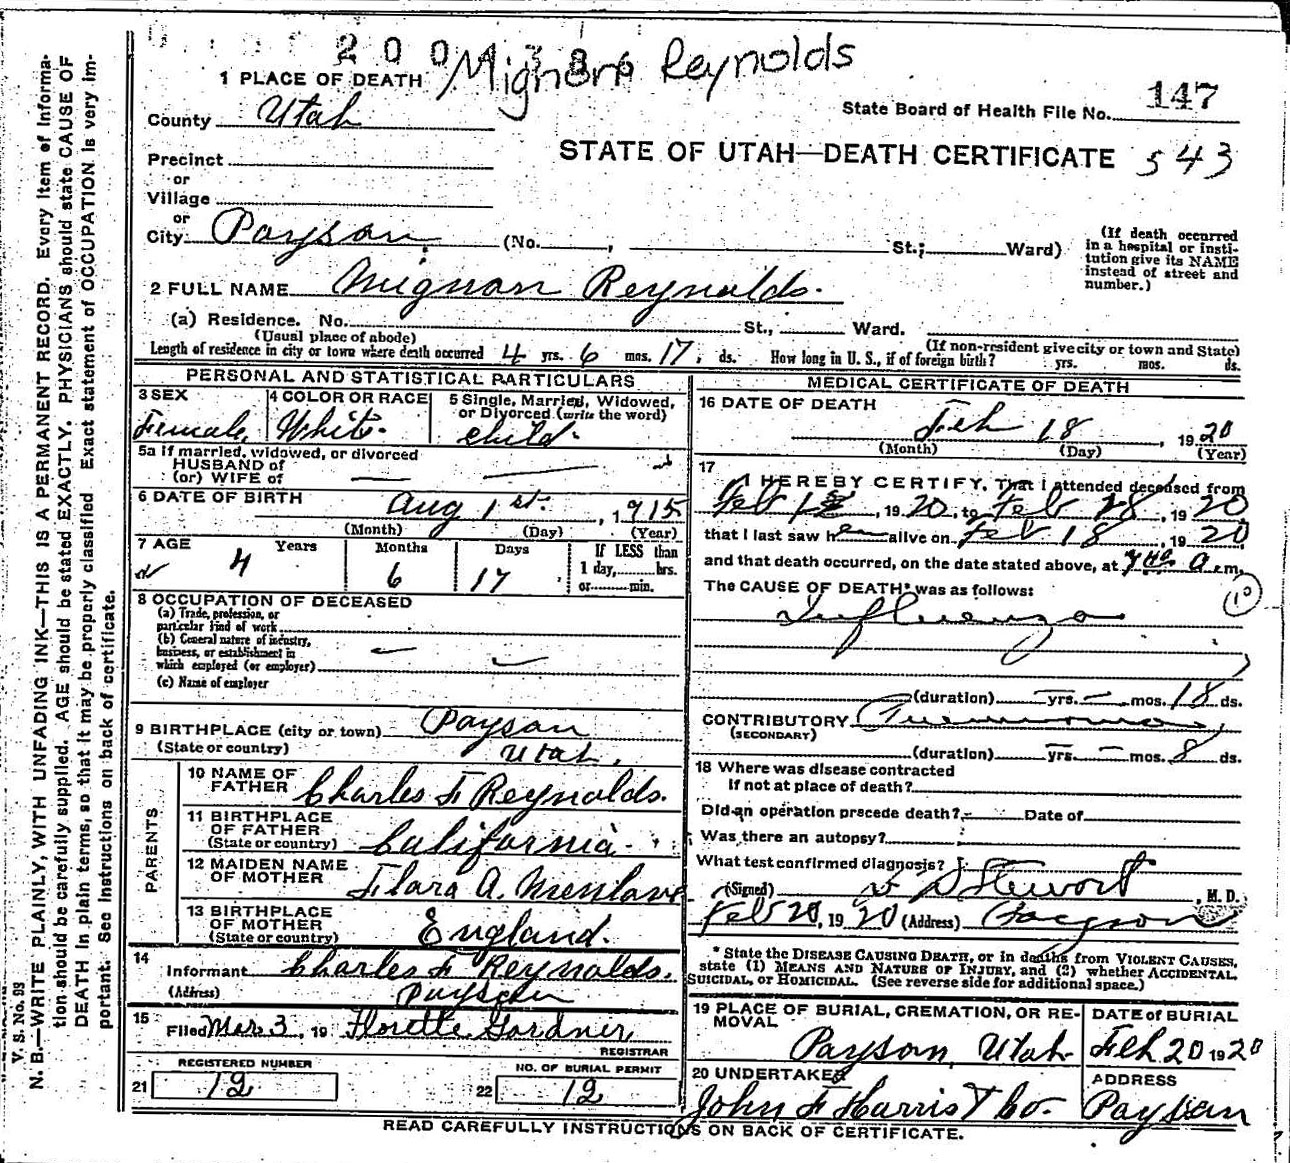 2 0 0 4 3 8 6
Mignon Reynolds
1 PLACE OF DEATH
County Utah
State Board of Health File No. 147
STATE OF UTAH—DEATH CERTIFICATE 543
Precinct
or
Village
or
City Payson (No. , St.; Ward)
(If death occurred
in a hospital or insti-
tution give its NAME
instead of street and
number.)
2 FULL NAME Mignon Reynolds.
(a) Residence. No. St., Ward.
(Usual place of abode) (If non-resident give city or town and State)
Length of residence in city or town where death occurred 4 yrs. 6 mos. 17 ds. How long in U. S., if of foreign birth? yrs. mos. ds.
PERSONAL AND STATISTICAL PARTICULARS
3 SEX
Female
4 COLOR OR RACE
White
5 Single, Married, Widowed,
or Divorced (write the word)
Child.
5a If married, widowed, or divorced
HUSBAND of
(or) WIFE of
6 DATE OF BIRTH
Aug 1st. , 1915
(Month) (Day) (Year)
7 AGE Years Months Days If LESS than
1 day, hrs.
or min.
4 6 17
8 OCCUPATION OF DECEASED
(a) Trade, profession, or
particular kind of work
(b) General nature of industry,
business, or establishment in
which employed (or employer)
(c) Name of employer
9 BIRTHPLACE (city or town) Payson
(State or country) Utah.
PARENTS
10 NAME OF
FATHER Charles F Reynolds.
11 BIRTHPLACE
OF FATHER
(State or country) California
12 MAIDEN NAME
OF MOTHER Flora A. Menlove
13 BIRTHPLACE
OF MOTHER
(State or country) England.
14
Informant Charles F Reynolds.
(Address) Payson
15
Filed Mar 3, 19 Florette Gardner
REGISTRAR
REGISTERED NUMBER
21 12
NO. OF BURIAL PERMIT
22 12
MEDICAL CERTIFICATE OF DEATH
16 DATE OF DEATH
Feb 18 , 1920
(Month) (Day) (Year)
17
I HEREBY CERTIFY, That I attended deceased from
Feb , 1920, to Feb 18, 1920
that I last saw h alive on Feb 18, 1920
and that death occurred, on the date stated above, at a m.
The CAUSE OF DEATH* was as follows:
Influenza
10
(duration) yrs. mos. 18 ds.
CONTRIBUTORY Pneumonia
(SECONDARY)
(duration) yrs. mos. 8 ds.
18 Where was disease contracted
If not at place of death?
Did an operation precede death? Date of
Was there an autopsy?
What test confirmed diagnosis?
(Signed) Stewart , M. D.
Feb 20, 1920 (Address) Payson
* State the DISEASE CAUSING DEATH, or in deaths from VIOLENT CAUSES,
state (1) MEANS AND NATURE OF INJURY, and (2) whether ACCIDENTAL,
SUICIDAL, OR HOMICIDAL. (See reverse side for additional space.)
19 PLACE OF BURIAL, CREMATION, OR RE-
MOVAL
Payson, Utah
DATE of BURIAL
Feb 20 1920
20 UNDERTAKER
John F Harris & Co.
ADDRESS
Payson
READ CAREFULLY INSTRUCTIONS ON BACK OF CERTIFICATE.
V. S. No. 93
N. B.—WRITE PLAINLY, WITH UNFADING INK—THIS IS A PERMANENT RECORD. Every item of Informa-
tion should be carefully supplied. AGE should be stated EXACTLY. PHYSICIANS should state CAUSE OF
DEATH in plain terms, so that it may be properly classified Exact statement of OCCUPATION is very im-
portant. See instructions on back of certificate.